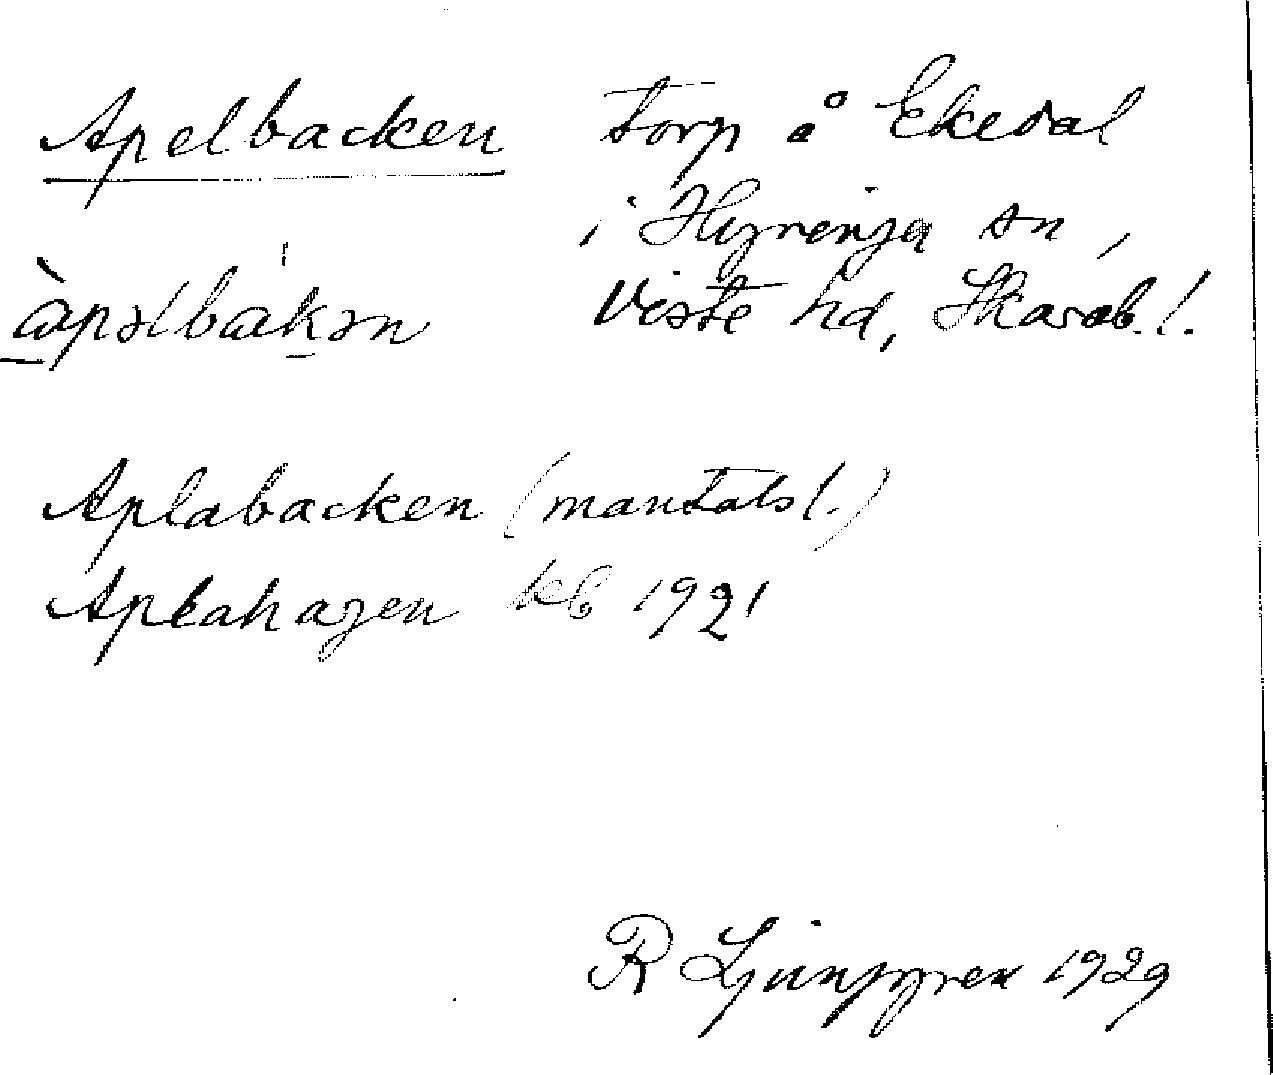 Apelbacken torp å Ekedal
i Hyrenja sn,
àpəlbàkən Viste hd, Skarab. l.
Aplabacken (mantalsl.)
Aplahagen kb 1921
R Ljunggren 1929